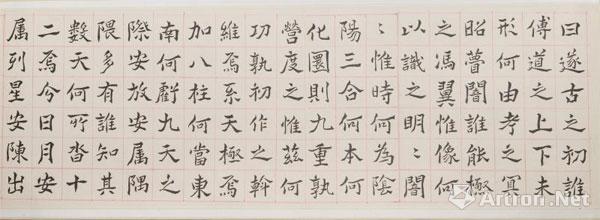 曰遂古之初誰
傅道之上下未
形何由考之冥
昭瞢闇誰能極
之馮翼惟像何
以識之明〻闇
〻惟時何為陰
陽三合何本何
化圜則九重孰
營度之惟茲何
功孰初作之幹
維焉系天極焉
加八柱何當東
南何虧九天之
際安放安属隅
隈多有誰知其
數天何所沓十
二焉今日月安
属列星安陳出
Artron.Net